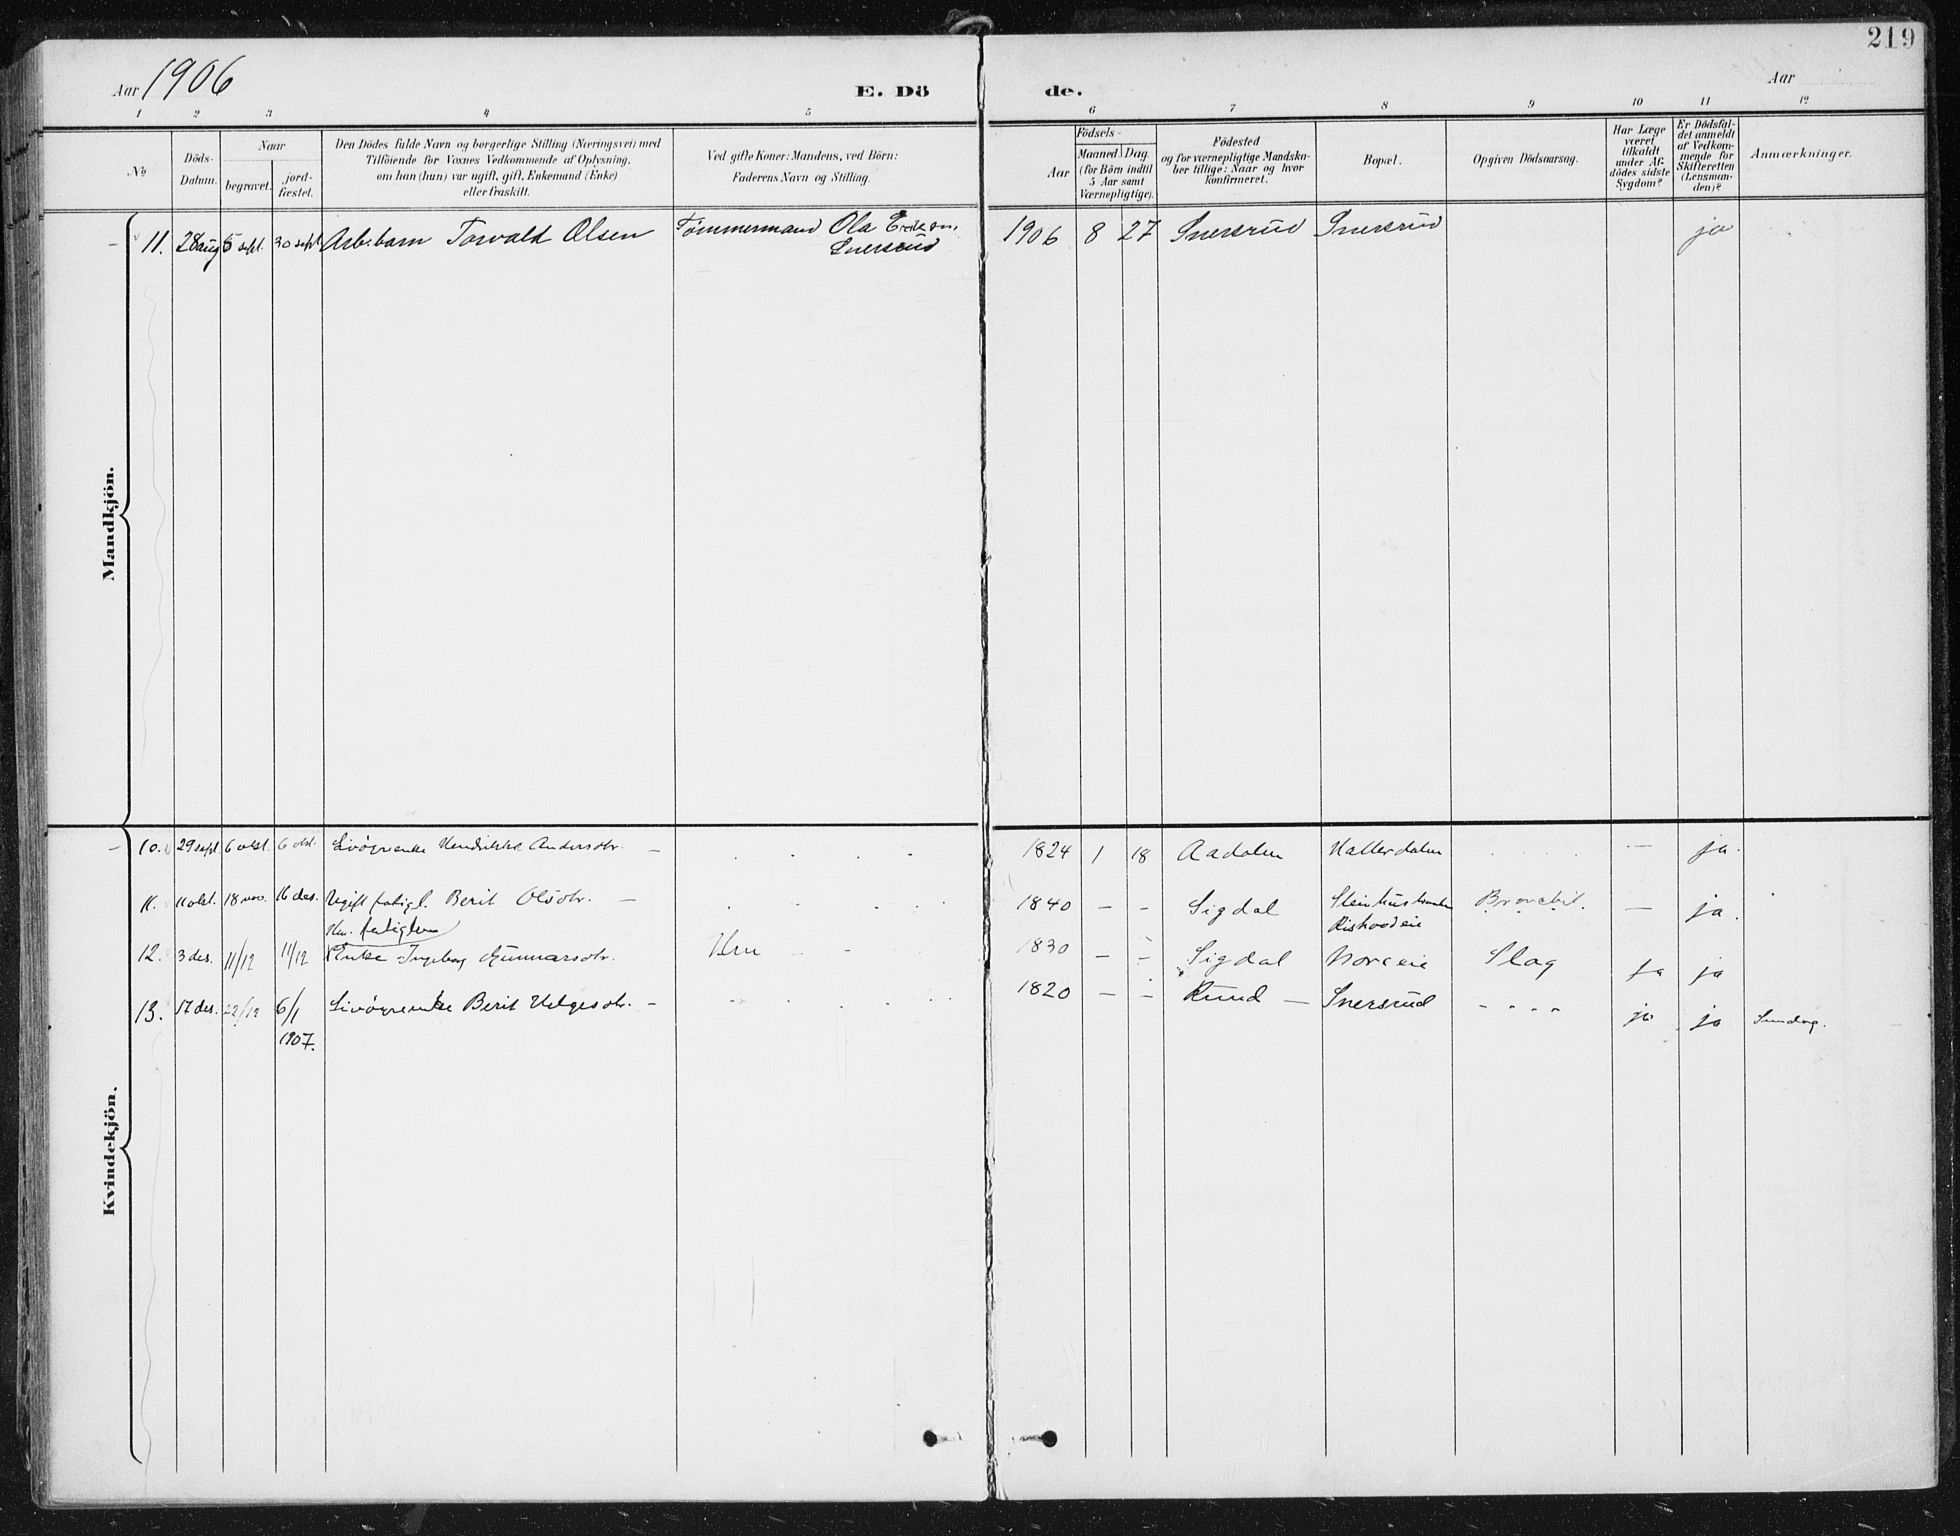 219
Aar 1906 E. Dö de. Aar
1 2 3 4 5 6 7 8 9 10 11 12
No
Döds-Datum.
Naar
begravet.
jord-fæstet.
Den Dödes fulde Navn og borgerlige Stilling (Næringsvei) med
Tilföiende for Voxnes Vedkommende af Oplysning,
om han (hun) var ugift, gift, Enkemand (Enke)
eller fraskilt.
Ved gifte Koner: Mandens, ved Börn:
Faderens Navn og Stilling.
Födsels-
Aar
Maaned. Dag.
(for Börn indtil
5 Aar samt
Værnepligtige).
Födested
og for værnepligtige Mandska-
ber tillige: Naar og hvor
konfirmeret.
Bopæl.
Opgiven Dödsaarsag.
Har Læge
været
tilkaldt
under Af-
dödes sidste
Sygdom?
Er Dödsfal-
det anmeldt
af Vedkom-
mende for
Skifteretten
(Lensman-
den)?
Anmærkninger.
Mandkjön.
11. 28 aug 5 sept. 30 sept Arb.barn Torvald Olsen Tømmermand Ola 1906 8 27 Snersrud Snersrud ja
Snersrud
Kvindekjön.
10. 29 sept. 6 okt. 6 okt. Hendrikke Andersdtr. — 1824 1 18 Aadalen Hallerdalen — ja.
11. 11 okt. 18 nov. 16 des. Ugift Berit Olsdtr. — 1840 — — Sigdal Bronchit. — ja.
12. 3 des. 11/12 11/12 Enke Ingeborg Gunnarsdtr. 1830 — — Sigdal Noreeie Slag ja ja
13. 17 des. 22/12 6/1 Berit Helgesdtr. — 1820 — — — Snersrud ja ja
1907.